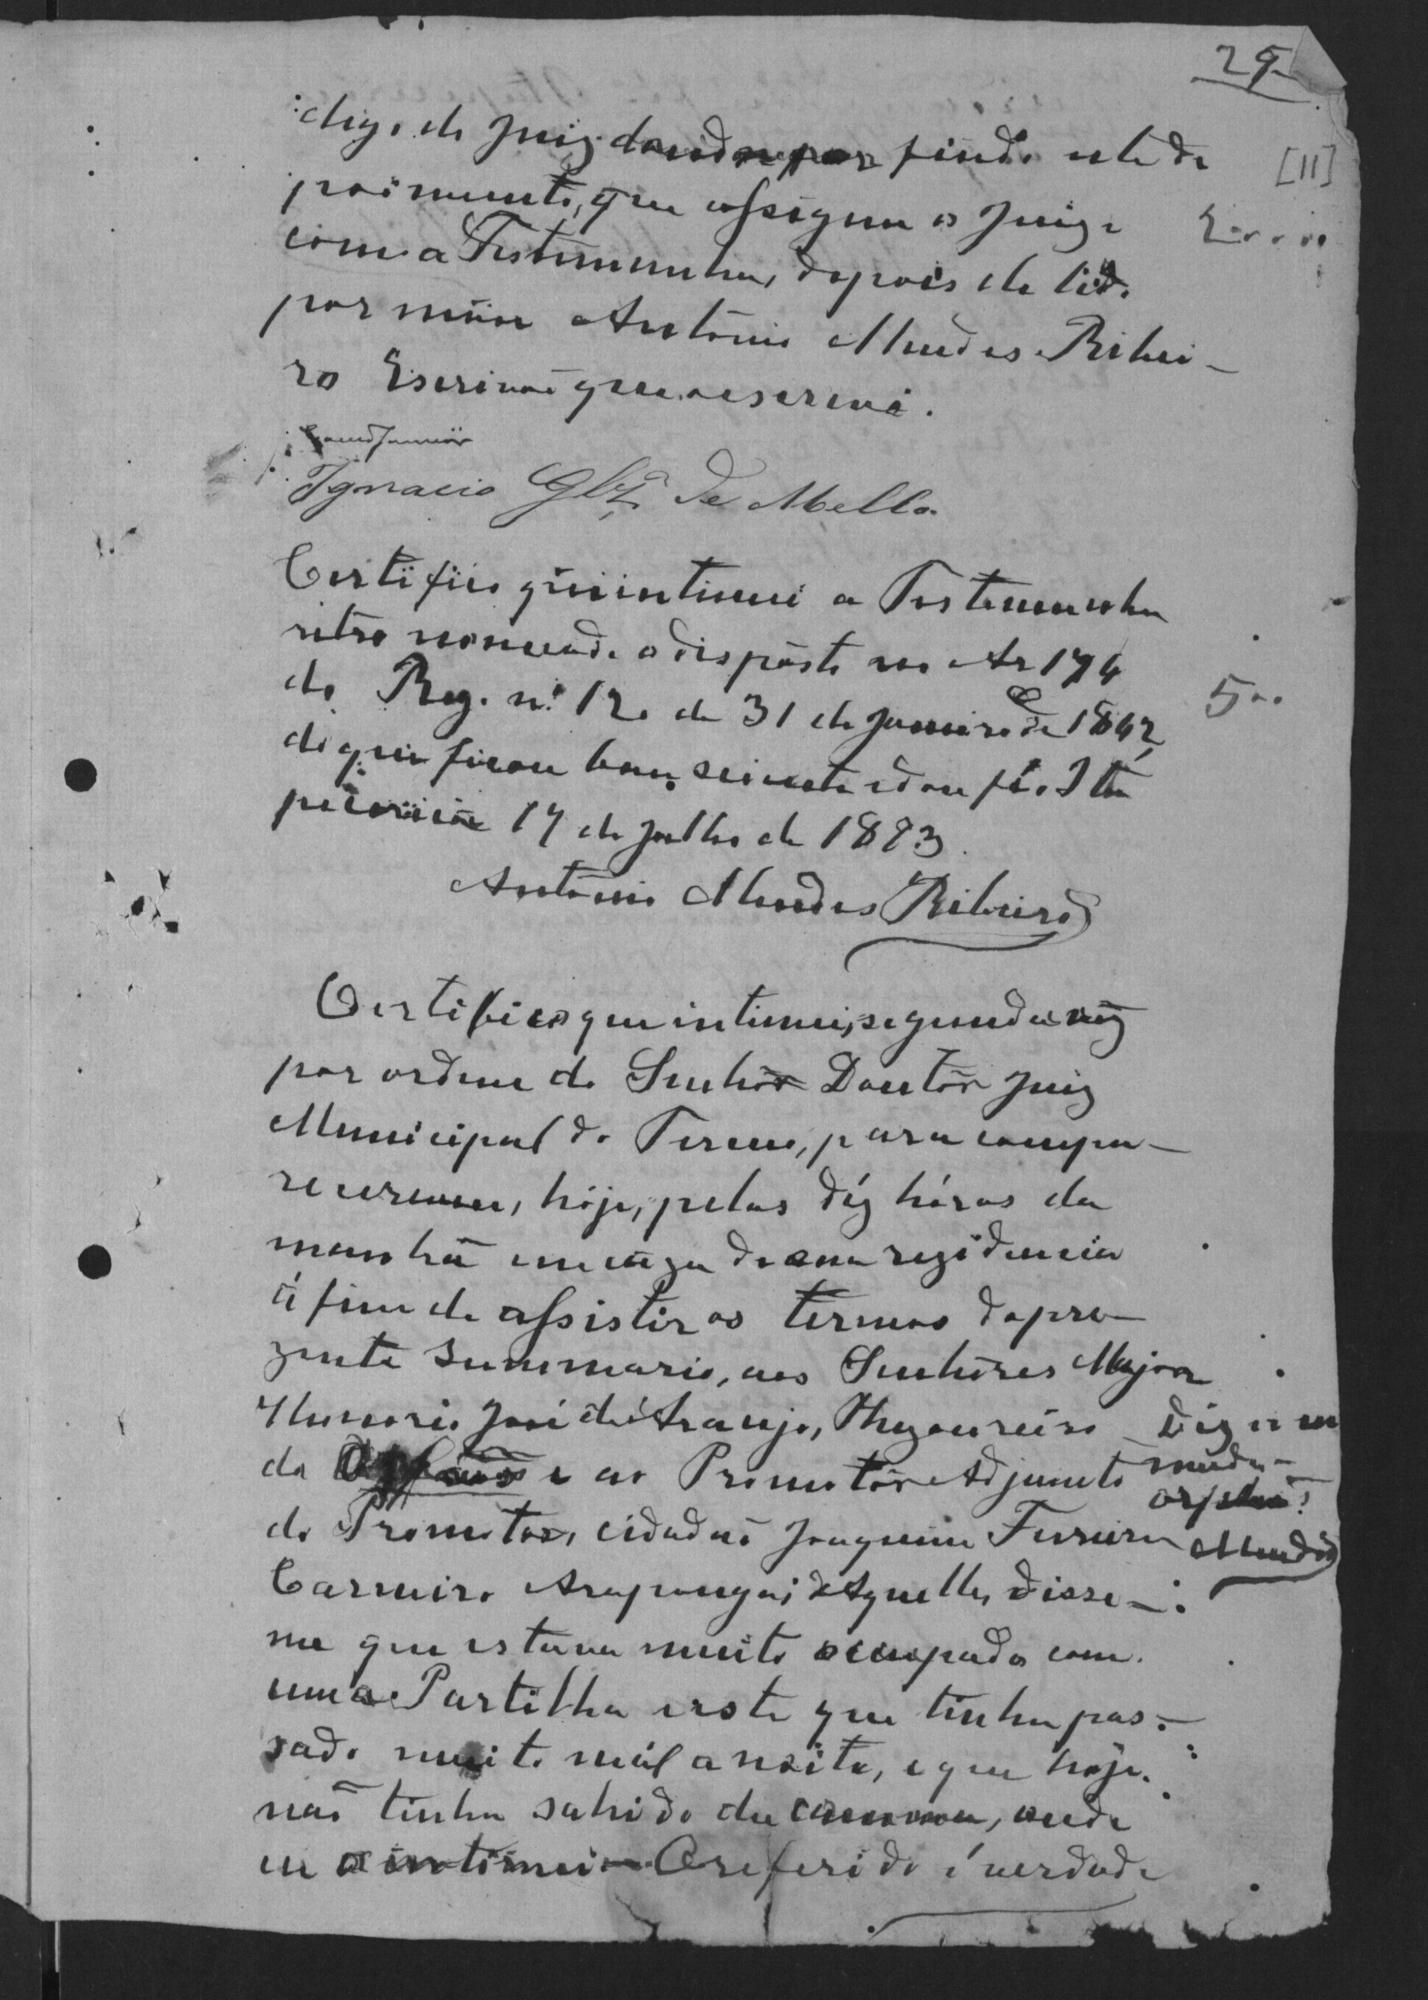 29
[11]
digo do Juiz dando por findo este de
poimento, que assigna o Juiz e
com a Testemunha, depois de lido
por mim Antônio Mendes Ribei-
ro Escrivaõ que o escrevi.
Ignacio Glz de Mello.
Certifico que intimei a Testemunha
retro nomeada o disposto no Ar 174
do Reg. nº 120 de 31 de Janeiro de 1842
de que ficou bem sciente e dou fé. Ita
pecirica 17 de Julho de 1883.
Antônio Mendes Ribeiro
Certifico que intimei, segunda vêz
por ordem do Senhôr Doutôr Juiz
Municipal do Termo, para compa-
recerem, hôje, pelas déz hóras da
manhã em caza de sua rezidencia
á fim de assistir os termos do pre-
zente Summario, aos Senhôres Major
Honorio José de Araujo, Thezoureiro
Digo em
da Orfaõs e ao Promotôr Adjunto
menda-
orfaõs:
do Promotor, cidadaõ Joaquim Ferreira
Mendes
Carneiro Arapongas; Aquelle, disse-
me que estava muito occupado com
uma Partilha e este que tinha pas-
sado muito mál a noite, e que hôje
naõ tinha sahido da camara, onde
eu o intimei. O referido é verdade